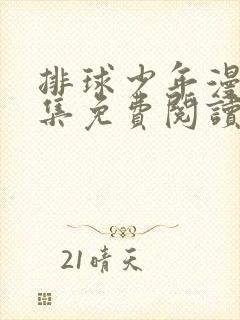 排球少年漫
集免費閱讀
21晴天